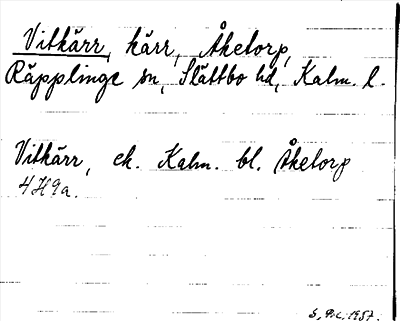 Vitkärr, kärr, Åketorp,
Räpplinge sn, Slättbo hd, Kalm. l.
Vitkärr, ek. Kalm. bl. Åketorp
4H9a.
S. P.c. 1957.